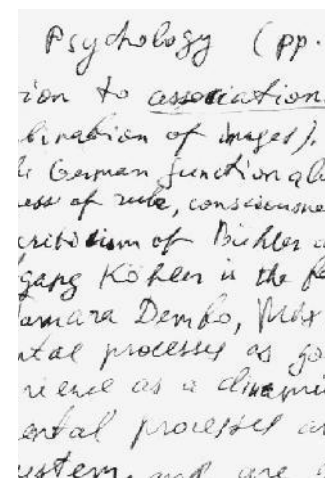 Psychology (pp.
ion to association
bination of images).
German functional
ess of rule, consciousne
critisism of Bühler
gang Köhler is the
Tamara Dembo, Max
ntal processes as go
rience as a dinami
ental processes
ystem, and are